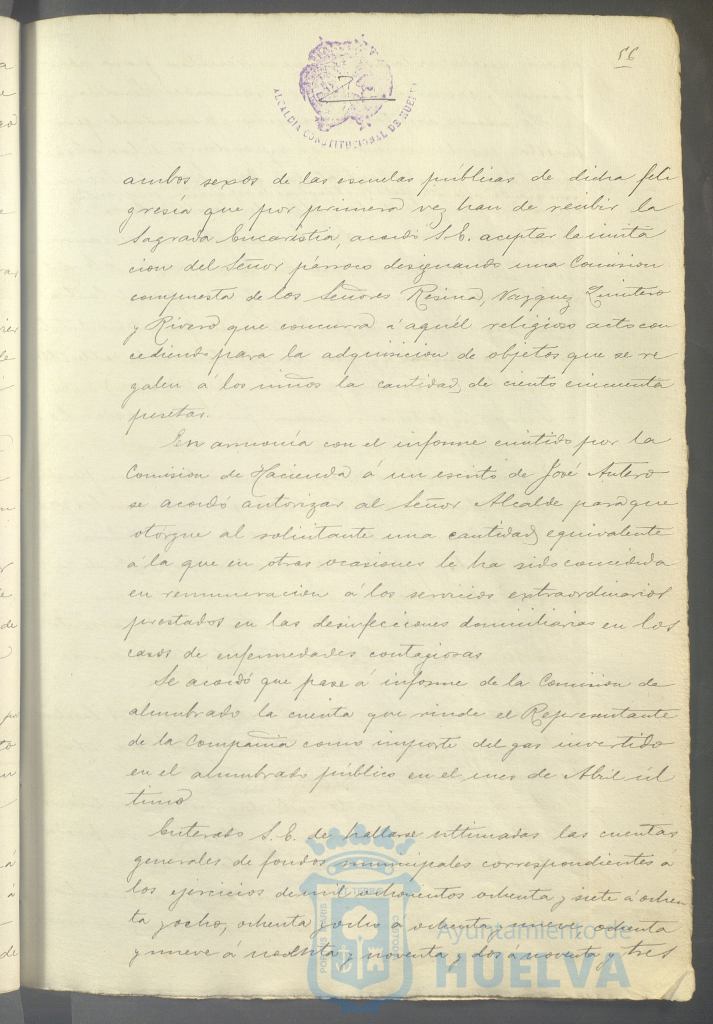 56
ALCALDIA CONSTITUCIONAL DE HUELVA
ambos sexos de las escuelas públicas de dicha feli
gresía que por primera vez han de recibir la
Sagrada Eucaristia, acordó S.E. aceptar la invita
cion del Señor párroco designando una Comision
compuesta de los Señores Resina, Vazquez, Quintero
y Rivero que concurra á aquél religioso acto con
cediendo para la adquisicion de objetos que se re
galen á los niños la cantidad de ciento cincuenta
pesetas.
En armonía con el informe emitido por la
Comision de Hacienda á un escrito de José Antero
se acordó autorizar al Señor Alcalde para que
otórgue al solicitante una cantidad equivalente
á la que en otras ocasiones le ha sido concedida
en remuneracion á los servicios extraordinarios
prestados en las desinfecciones domiciliarias en los
casos de enfermedades contagiosas
Se acordó que pase á informe de la Comision de
alumbrado la cuenta que rinde el Representante
de la Compañia como importe del gas invertido
en el alumbrado público en el mes de Abril úl
timo
Enterado S.E. de hallarse ultimadas las cuentas
generales de fondos municipales correspondientes á
los ejercicios de mil ochocientos ochenta y siete á ochen
ta y ocho, ochenta y ocho á ochenta y nueve, ochenta
y nueve á noventa y noventa y dos á noventa y tres
Ayuntamiento de
HUELVA